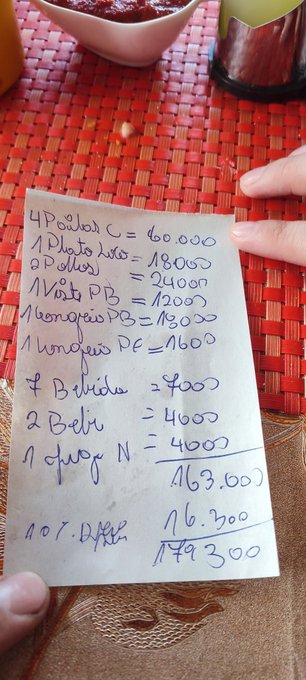 4 C = 60.000
1 Plato = 18000
2 Pollos = 24000
1 PB = 12000
1 Congrio PB = 18000
1 Congrio PE = 16000
7 Bebida = 7000
2 Bebi = 4000
1 N = 4000
163.000
10%. 16.300
179300